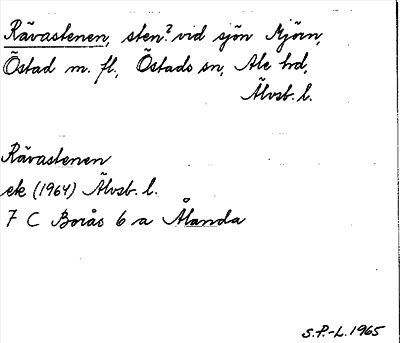 Rävastenen, sten? vid sjön Mjörn,
Östad m. fl., Östads sn, Ale hd,
Älvsb. l.
Rävastenen
ek (1964) Älvsb. l.
7 C Borås 6 a Ålanda
S.P.-L. 1965